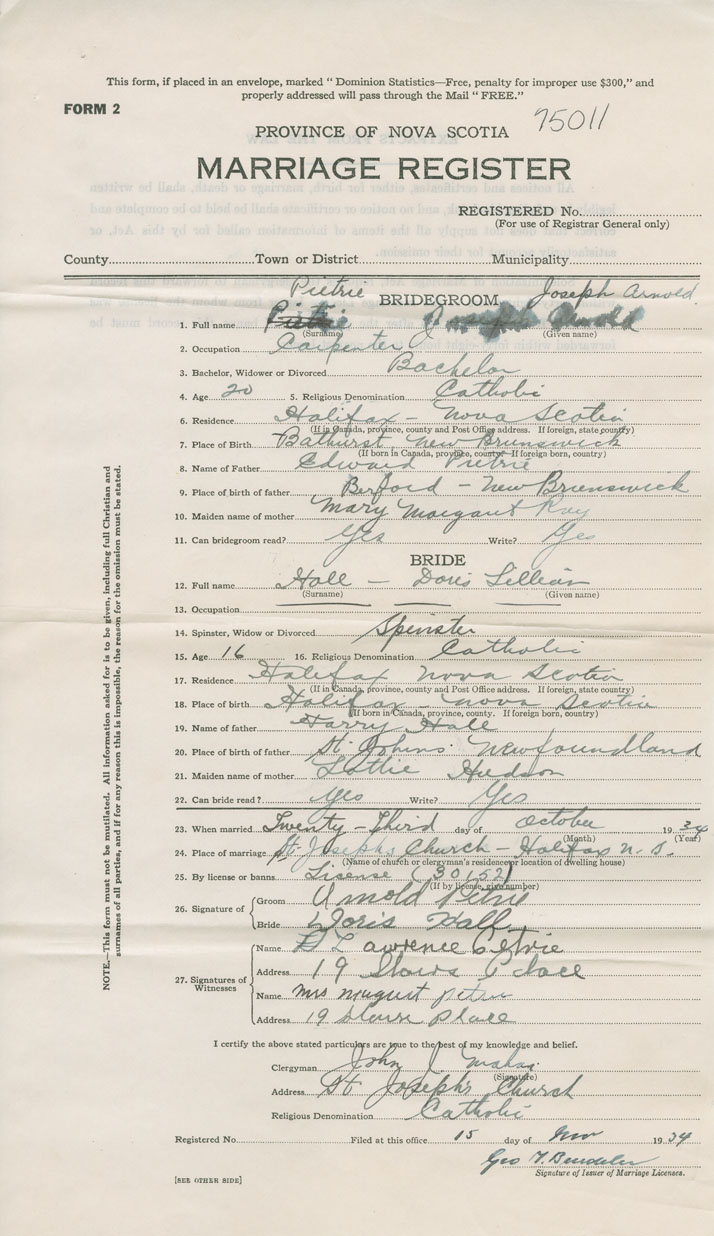 This form, if placed in an envelope, marked " Dominion Statistics—Free, penalty for improper use $300," and
properly addressed will pass through the Mail " FREE."
FORM 2
75011
PROVINCE OF NOVA SCOTIA
MARRIAGE REGISTER
REGISTERED No.
(For use of Registrar General only)
County Town or District Municipality
Pietrie BRIDEGROOM Joseph Arnold
1. Full name Pietrie Joseph Arnold
(Surname) (Given name)
2. Occupation Carpenter
3. Bachelor, Widower or Divorced Bachelor
4. Age 20 5. Religious Denomination Catholic
6. Residence Halifax - Nova Scotia
(If in Canada, province, county and Post Office address. If foreign, state country)
7. Place of Birth Bathurst New Brunswick
(If born in Canada, province, county. If foreign born, country)
8. Name of Father Edward Pietrie
9. Place of birth of father - New Brunswick
10. Maiden name of mother Mary Margaret Roy
11. Can bridegroom read? Yes Write? Yes
BRIDE
12. Full name Hall - Doris Lillian
(Surname) (Given name)
13. Occupation
14. Spinster, Widow or Divorced Spinster
15. Age 16 16. Religious Denomination Catholic
17. Residence Halifax Nova Scotia
(If in Canada, province, county and Post Office address. If foreign, state country)
18. Place of birth Halifax - Nova Scotia
(If born in Canada, province, county. If foreign born, country)
19. Name of father Harry Hall
20. Place of birth of father St. Johns Newfoundland
21. Maiden name of mother Lottie Hudson
22. Can bride read? Yes Write? Yes
23. When married Twenty-Third day of October 1934
(Month) (Year)
24. Place of marriage St Josephs Church - Halifax N. S.
(Name of church or clergyman's residence or location of dwelling house)
25. By license or banns Lisense (30152)
(If by license, give number)
26. Signature of
Groom Arnold Petrie
Bride Doris Hall
27. Signatures of Witnesses
Name Lawrence Petrie
Address 19 Place
Name Mrs Petrie
Address 19 Place
I certify the above stated particulars are true to the best of my knowledge and belief.
Clergyman John J
(Signature)
Address St Joseph's Church
Religious Denomination Catholic
Registered No. Filed at this office 15 day of Nov 1934
Geo
Signature of Issuer of Marriage Licenses.
[SEE OTHER SIDE]
NOTE.—This form must not be mutilated. All information asked for is to be given, including full Christian and
surnames of all parties, and if for any reason this is impossible, the reason for the omission must be stated.